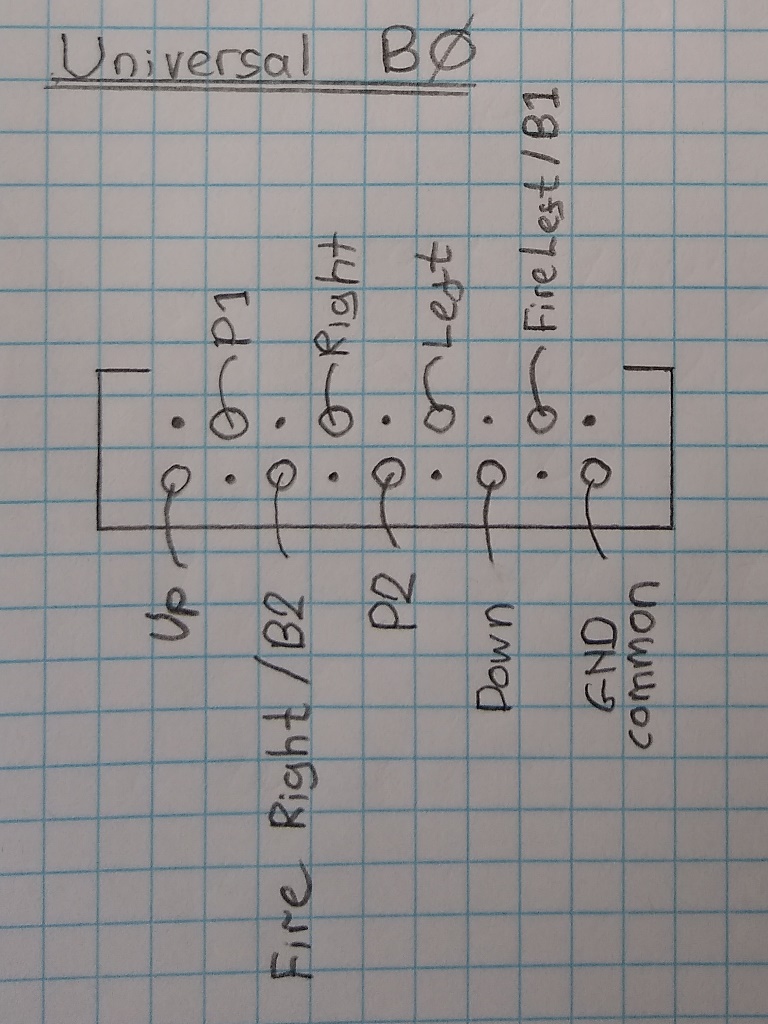 Universal BØ
P1
Right
Left
Fire Left/B1
Up
Fire Right/B2
P2
Down
GND
common